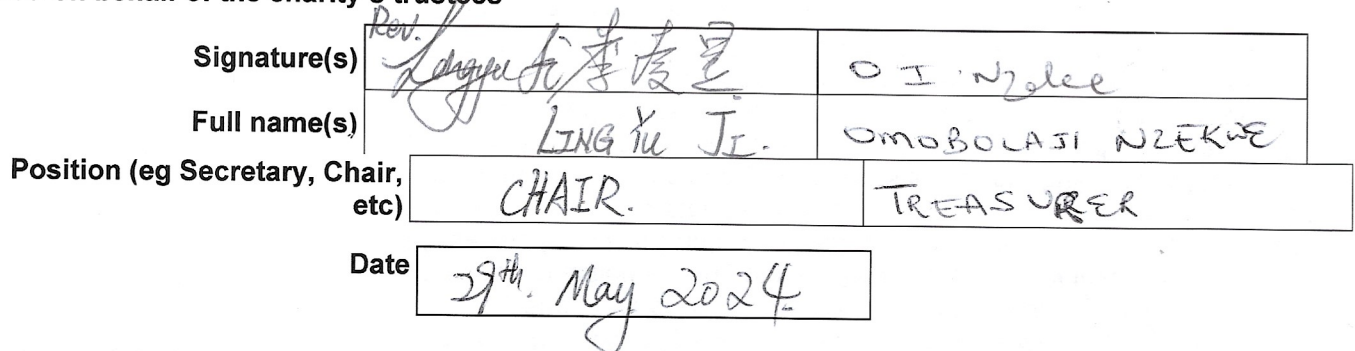 Signature(s) Rev. O I . Nzekwe
Full name(s) LING YU JI. OMOBOLAJI NZEKWE
Position (eg Secretary, Chair, etc) CHAIR. TREASURER
Date 29th. May 2024